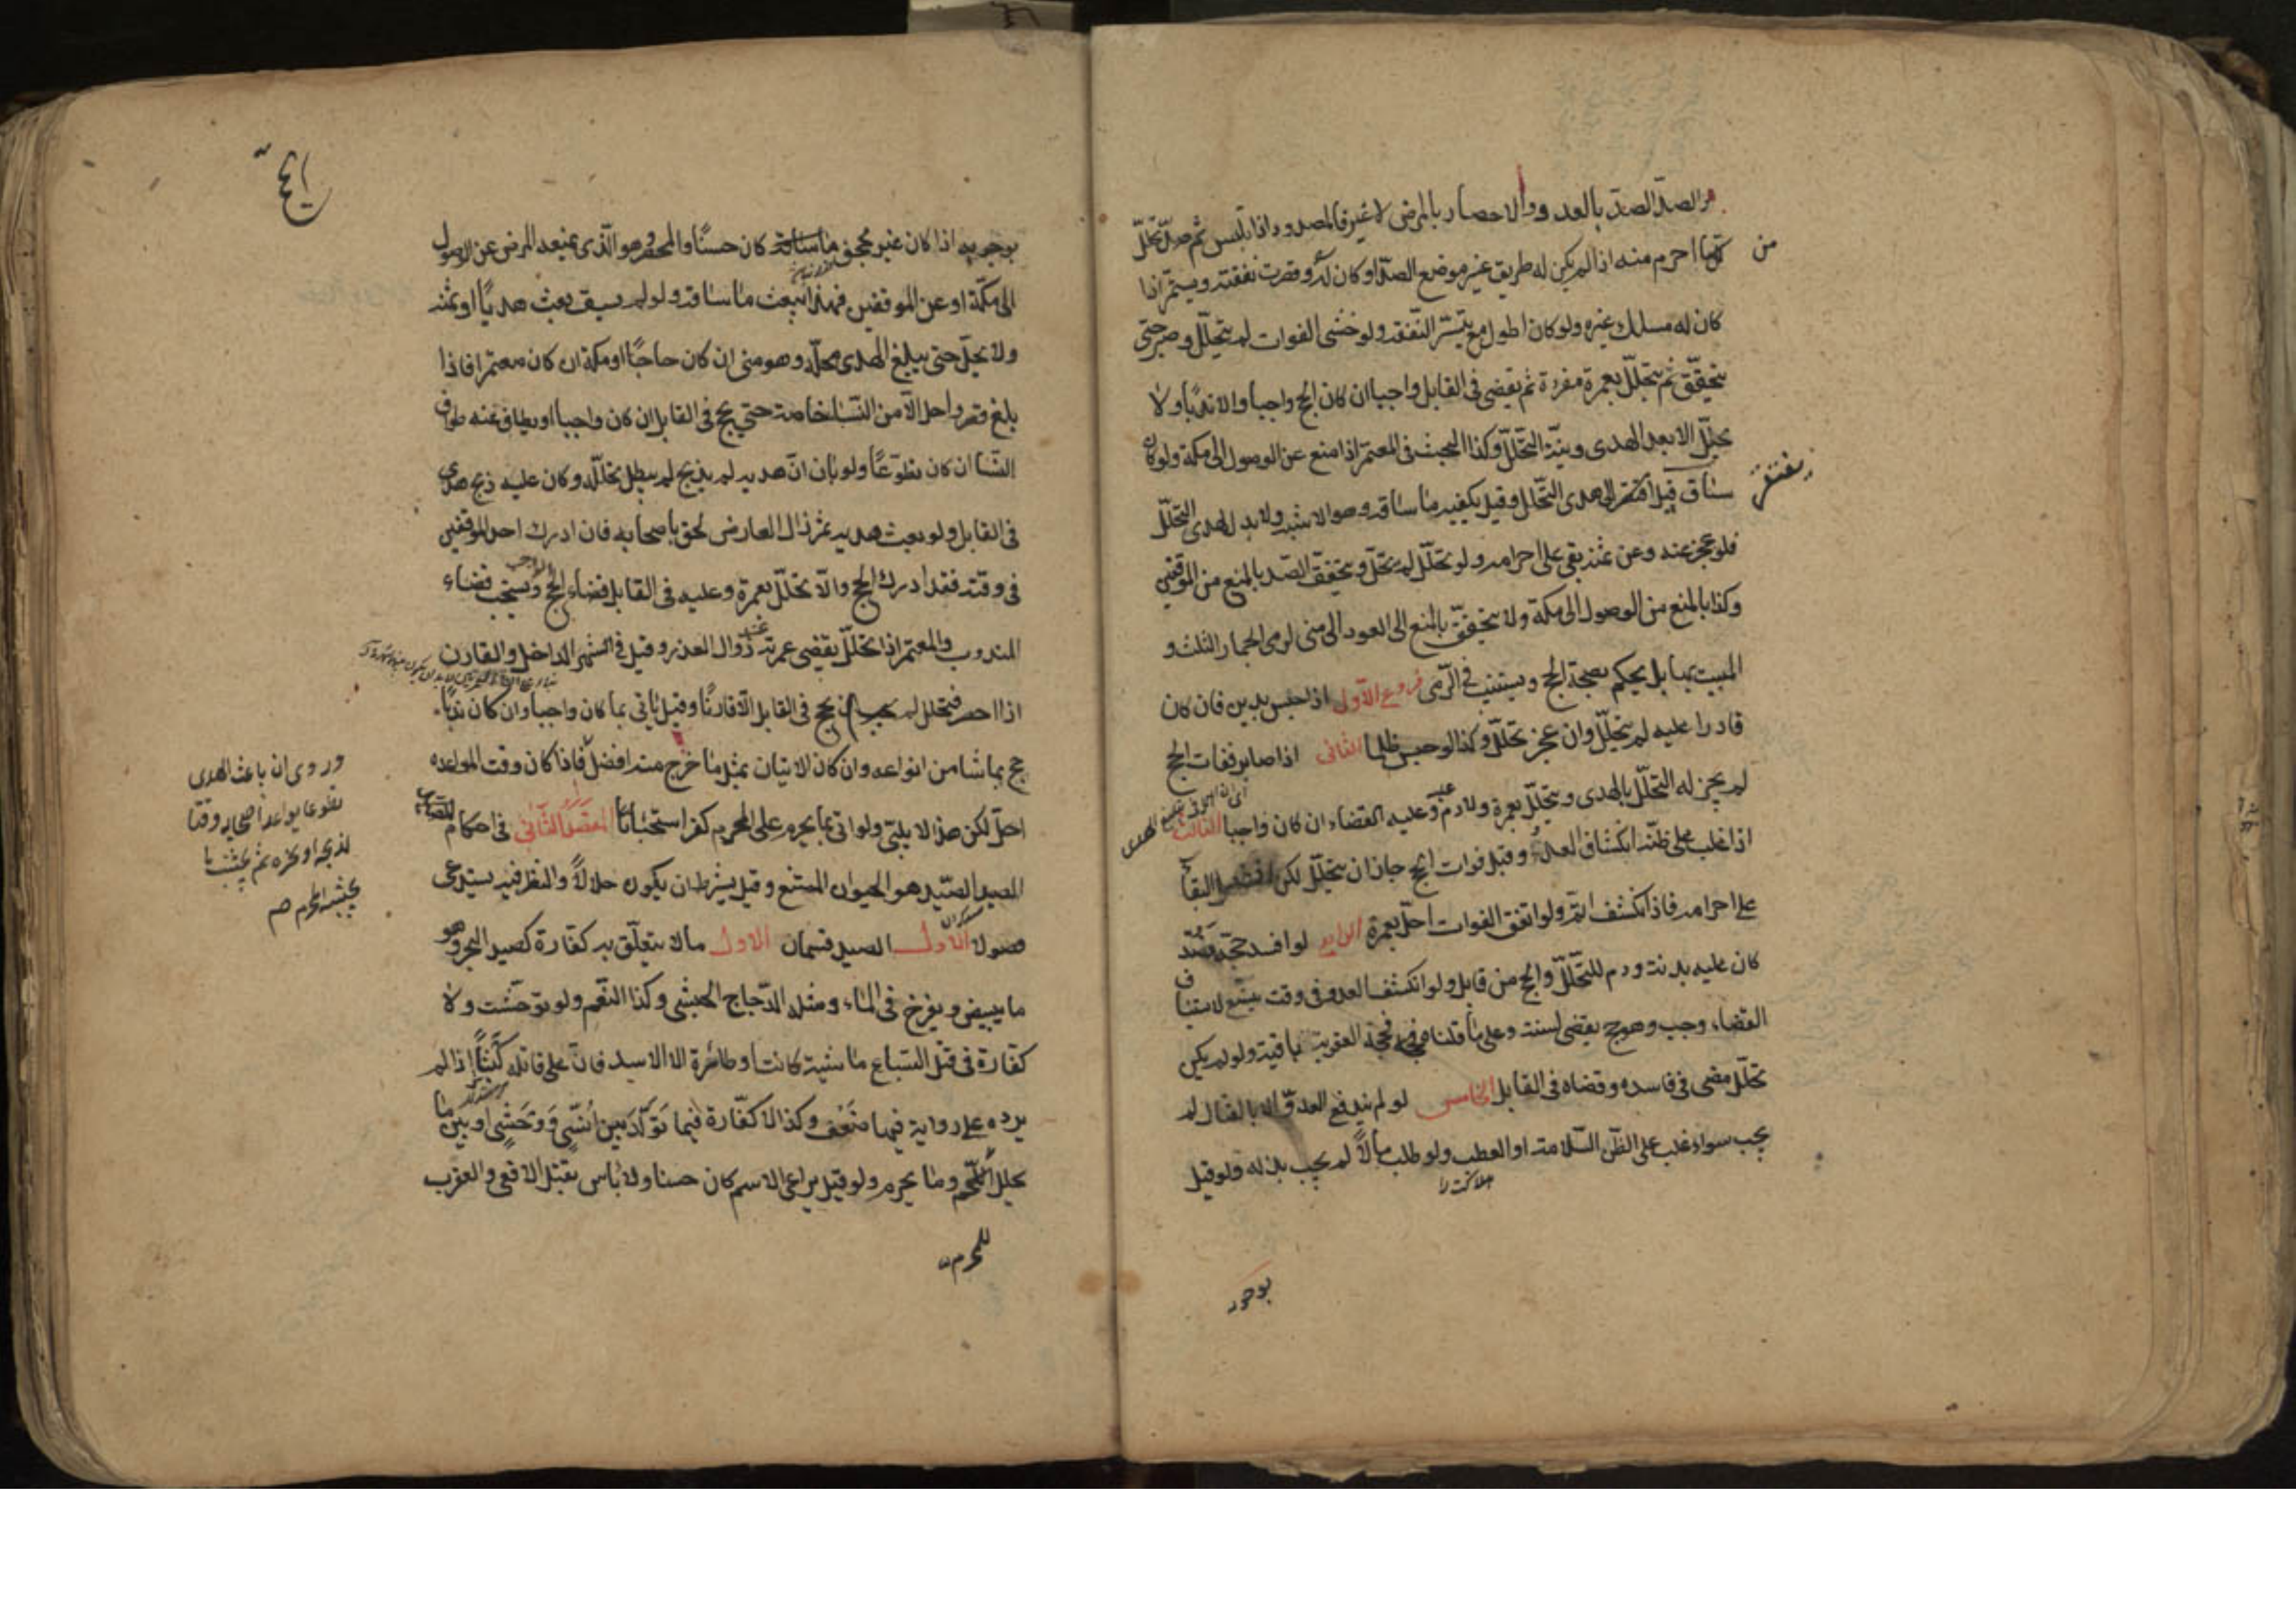 الصد الصد بالعدو والاحصار بالمرض لا غير فالمصدود اذا تلبس ثم صد تحلل
من
كلما احرم منه اذا لم يكن له طريق غير موضع الصد او كان له وقصرت نفقته ويستمر اذا
كان له مسلك غيره ولو كان اطول مع تيسر النفقة ولو خشى الفوات لم يتحلل وصبر حتى
يتحقق ثم يتحلل بعمرة مفردة ثم يقضى فى القابل واجبا ان كان الحج واجبا والا ندبا ولا
يحلل الا بعد الهدى ونية التحلل وكذا البحث فى المعتمر اذا منع عن الوصول الى مكة ولو كان
ساق قيل افتقر الى هدى التحلل وقيل يكفيه ما ساقه وهو الاشبه ولا بدل لهدى التحلل
يفتقر
فلو عجز عنه وعن ثمنه بقى على احرامه ولو تحلل لم يحل ويتحقق الصد بالمنع من الموقفين
وكذا بالمنع من الوصول الى مكة ولا يتحقق بالمنع الى العود الى منى لرمى الجمار الثلث و
المبيت بها بل يحكم بصحة الحج ويستنيب فى الرمى فروع الاول اذا حبس بدين فان كان
قادرا عليه لم يتحلل وان عجز تحلل وكذا لو حبس ظلما الثانى اذا صابر ففات الحج
لم يجز له التحلل بالهدى ويتحلل بعمرة ولا دم وعليه القضاء ان كان واجبا الثالث
اذا غلب على ظنه انكشاف العدو قبل فوات الحج جاز ان يتحلل لكن الافضل البقاء
على احرامه فاذا انكشف اتم ولو اتفق الفوات احل بعمرة الرابع لو افسد حجه فصد
كان عليه بدنة ودم للتحلل والحج من قابل ولو انكشف العدو فى وقت يتسع لاستيناف
القضاء وجب وهو حج يقضى لسنته وعلى ما قلناه فحجة العقوبة باقية ولو لم يكن
تحلل مضى فى فاسده وقضاه فى القابل الخامس لو لم يندفع العدو الا بالقتال لم
يجب سواء غلب على الظن السلامة او العطب ولو طلب مالا لم يجب بذله ولو قيل
بوجوبه
بوجوبه اذا كان غير مجحف كان حسنا والمحصر هو الذى يمنعه المرض عن الوصول
الى مكة او عن الموقفين فهذا يبعث ما ساقه ولو لم يسق بعث هديا او ثمنه
ولا يحل حتى يبلغ الهدى محله وهو منى ان كان حاجا او مكة ان كان معتمرا فاذا
بلغ قصر واحل الا من النساء خاصة حتى يحج فى القابل ان كان واجبا او يطاف عنه طواف
النسا ان كان تطوعا ولو بان ان هديه لم يذبح لم يبطل تحلله وكان عليه ذبح هدى
فى القابل ولو بعث هديه ثم زال العارض لحق باصحابه فان ادرك احد الموقفين
فى وقته فقد ادرك الحج والا تحلل بعمرة وعليه فى القابل قضاء الحج الواجب ويستحب قضاء
المندوب والمعتمر اذا تحلل يقضى عمرته عند زوال العذر وقيل فى الشهر الداخل والقارن
اذا احصر فتحلل لم يحج فى القابل الا قارنا وقيل ياتى بما كان واجبا وان كان ندبا
حج بما شا من انواعه وان كان الاتيان بمثل ما خرج منه افضل فاذا كان وقت المواعدة
احل لكن هذا لا يلبى ولو اتى بما يحرم على المحرم كفر استحبابا المقصد الثانى فى احكام
الصيد الصيد هو الحيوان الممتنع وقيل يشترط ان يكون حلالا والنظر فيه يستدعى
فصولا الاول الصيد قسمان الاول ما لا يتعلق به كفارة كصيد البحر وهو
ما يبيض ويفرخ فى الماء ومثله الدجاج الحبشى وكذا النعم ولو توحشت ولا
كفارة فى قتل السباع ماشية كانت او طائرة الا الاسد فان على قاتله كبشا اذا لم
يرده على رواية فيها ضعف وكذا لا كفارة فيما تولد بين انسى ووحشى او بين ما
يحلل اكله وما يحرم ولو قيل يراعى الاسم كان حسنا ولا باس بقتل الافعى والعقرب
للمحرم
وروى ان باعث الهدى
تطوعا يواعد اصحابه وقتا
لذبحه او نحره ثم يجتنب ما
يجتنبه المحرم